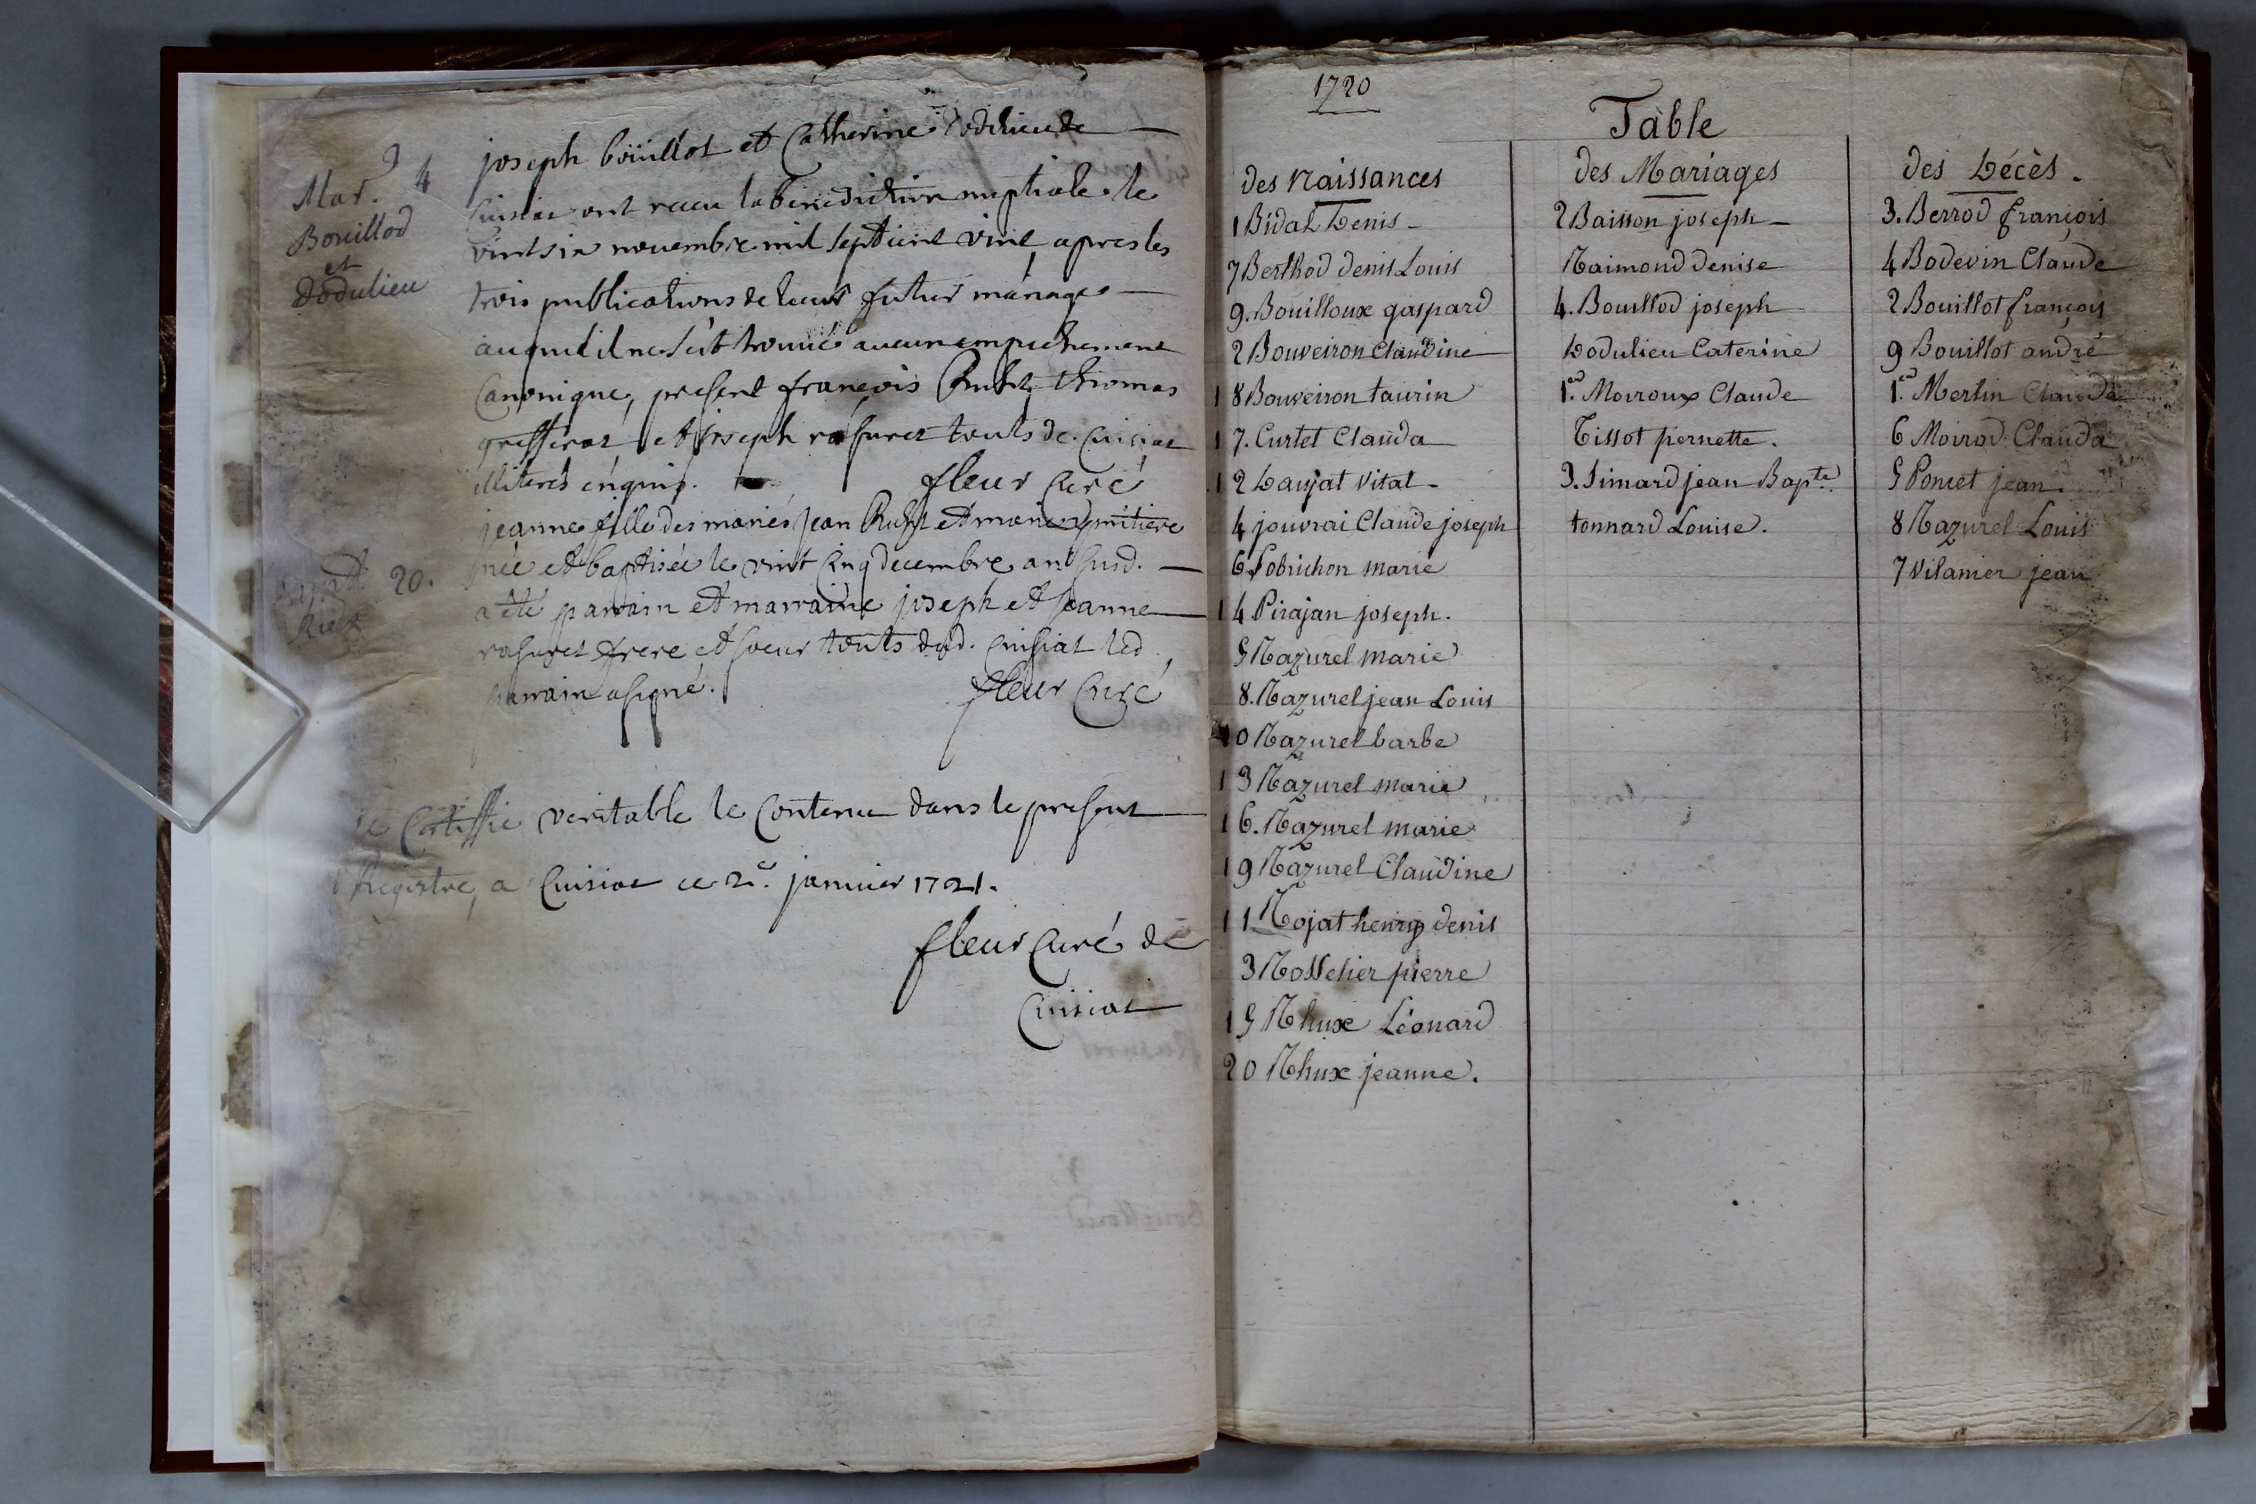 Mar. 4
Bouillod
et
Dodulieu
joseph boüillot et Catherine dodulieu de
Cuisiat ont receu la benediction nuptiale le
vint six novembre mil sept cent vint, apres les
trois publications de leur futur mariage
auquel il ne s'est trouvé aucun empechement
Canonique, present françois Ruhx thomas
et joseph rasurel touts de Cuisiat
illiterés enquis. fleur Curé
20.
jeanne fille des mariés jean Ruhx et
née et baptisée le vint cinq decembre an susd.
a été parrain et marraine joseph et jeanne
rasurel frere et soeur touts dud. Cuisiat led.
parrain a signé. fleur Curé
je Certiffie veritable le Contenu dans le present
Registre, a Cuisiat ce 2e. janvier 1721.
fleur Curé de
Cuisiat
1720
Table
des Naissances
1 Bidal Denis
7 Berthod denis Louis
9. Bouilloux gaspard
2 Bouveiron Claudine
18 Bouveiron taurin
17. Curtet Clauda
12 Daujat Vital
4 jouvrai Claude joseph
6 Pobrichon marie
14 Pirajan joseph.
5 Razurel marie
8. Razurel jean Louis
10 Razurel barbe
13 Razurel marie
16. Razurel marie
19 Razurel Claudine
11. Rojat henry denis
3 Rosselier pierre
15 Rhux Léonard
20 Rhux jeanne.
des Mariages
2 Baisson joseph
Raimond denise
4. Bouillod joseph
Dodulieu Caterine
1.er Moiroux Claude
Tissot pernette.
3. Simard jean Bapte.
tonnard Louise.
des Décès.
3. Berrod françois
4 Bodevin Claude
2 Bouillot françois
9 Bouillot andré
1.er Merlin Claude
6 Moirod Clauda
5 Poncet jean
8 Razurel Louis
7 Vilanier jean